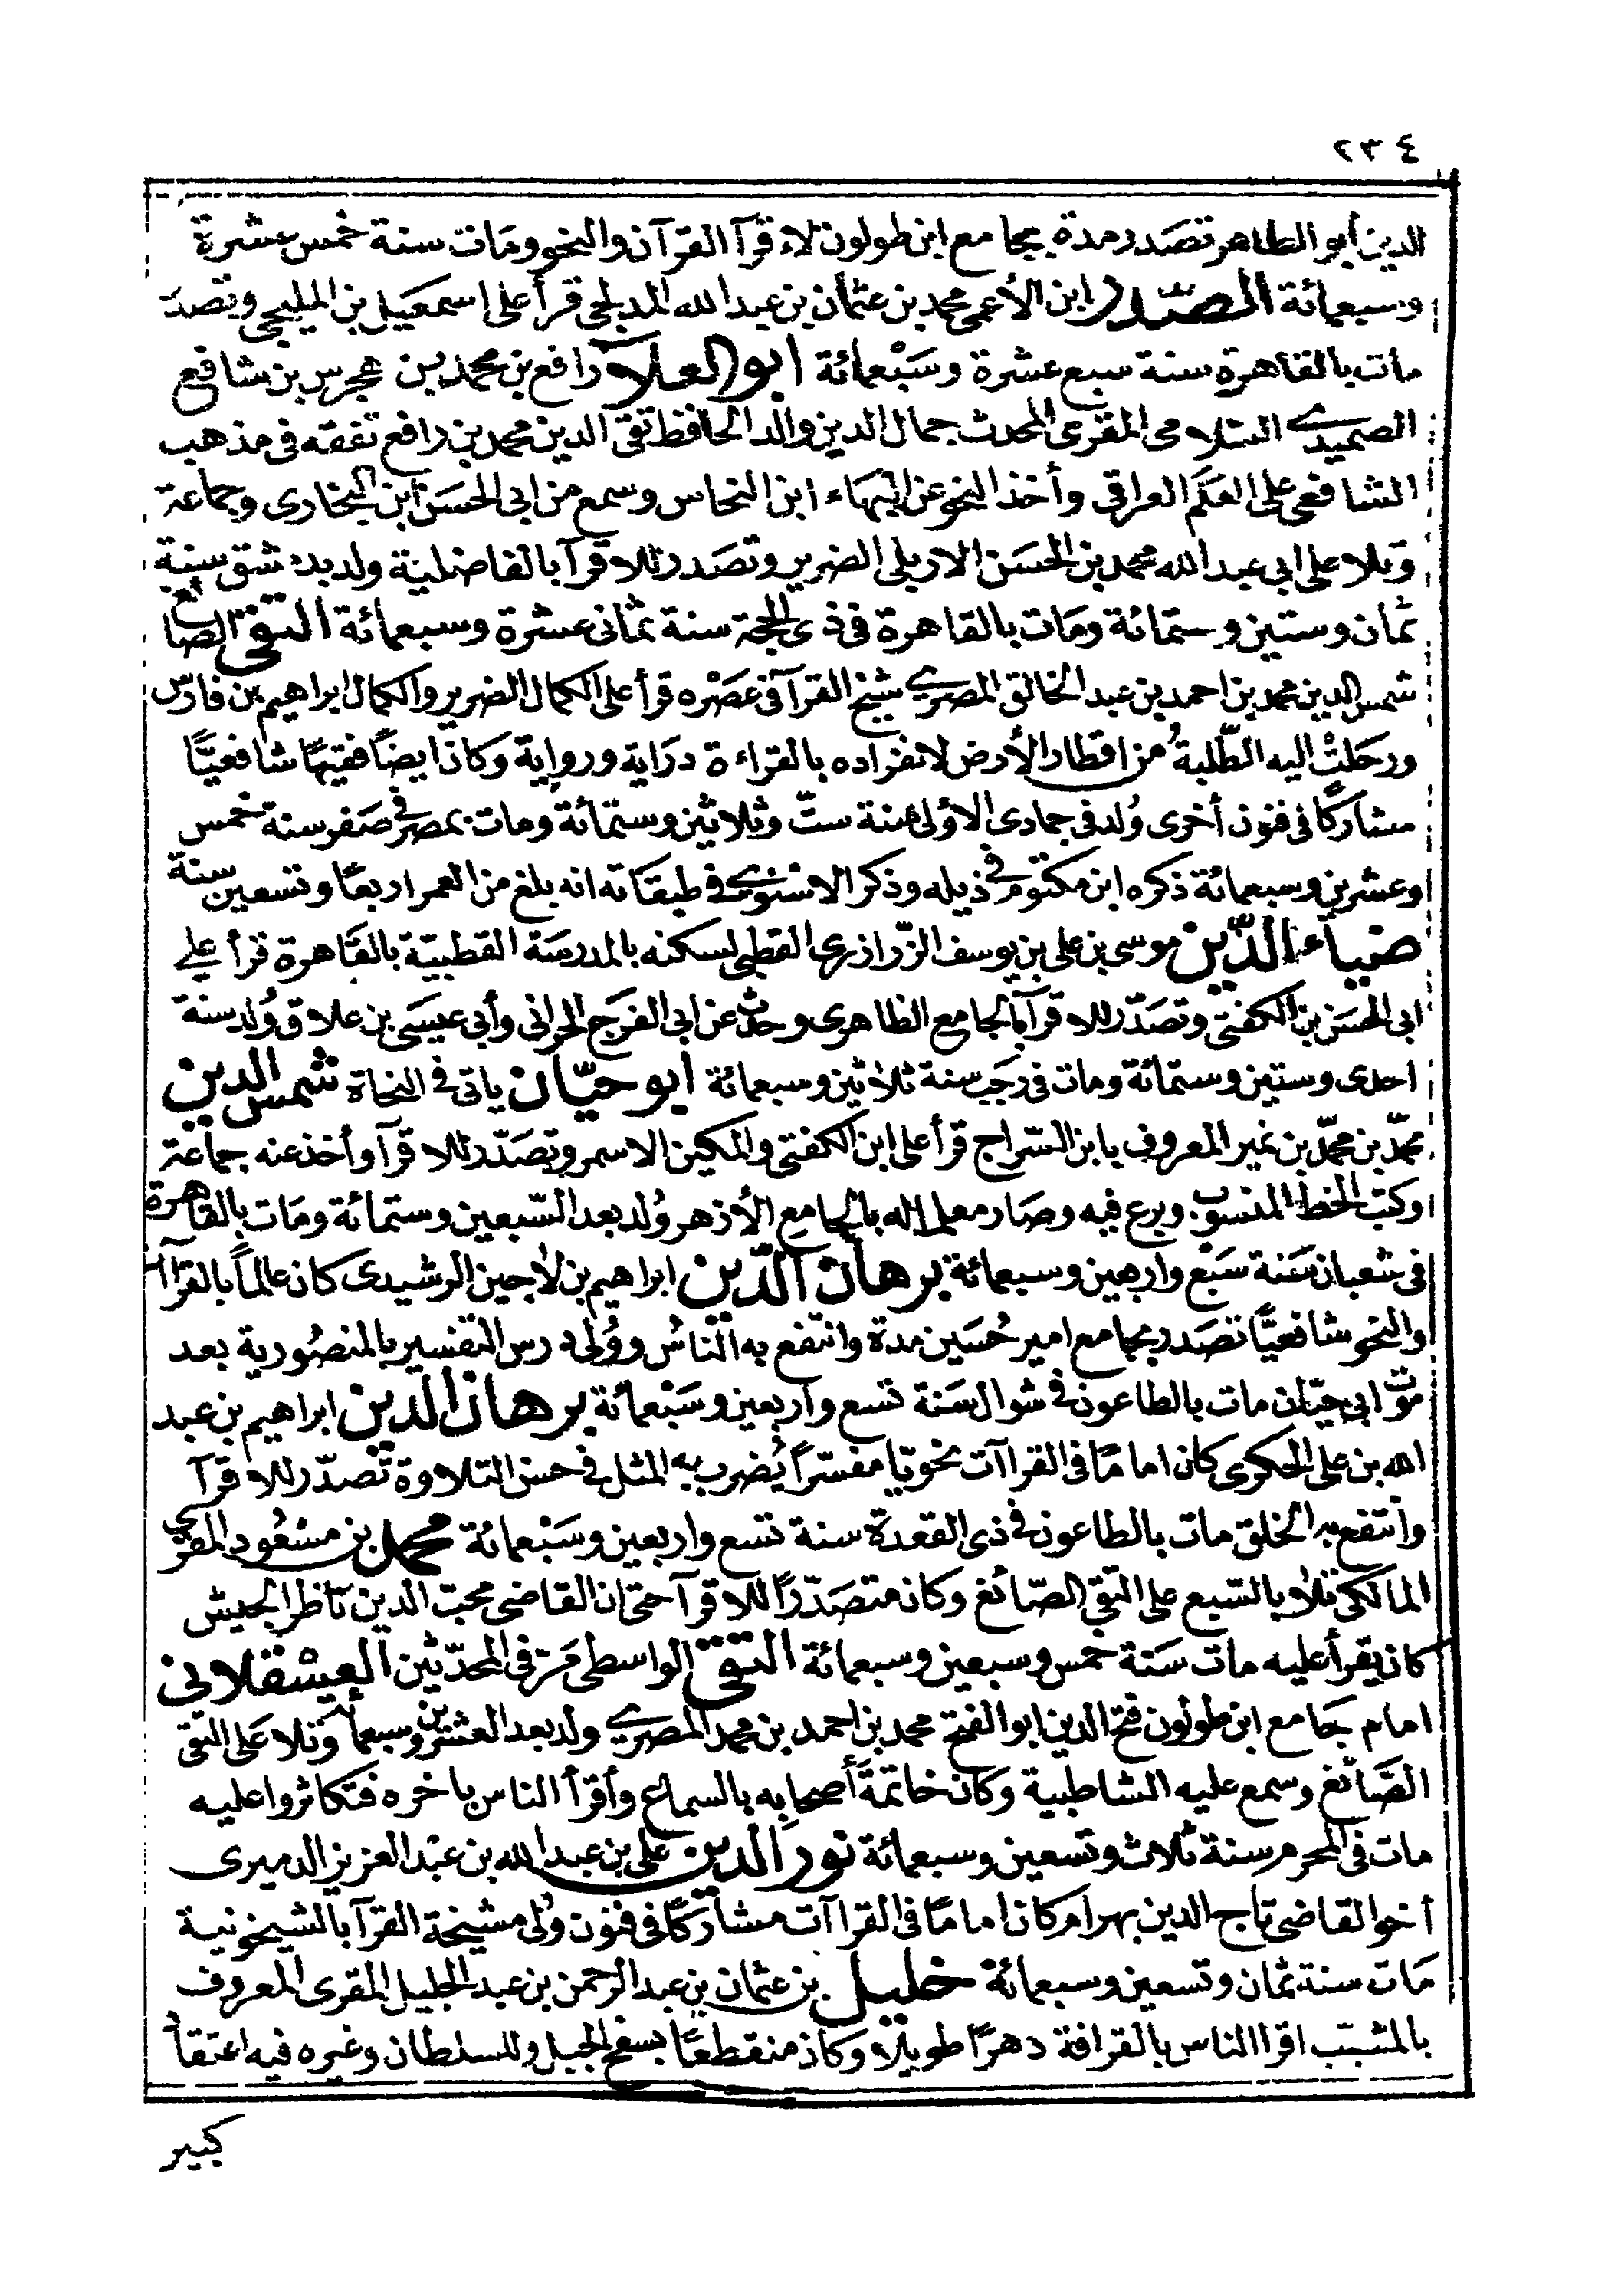 ٢٣٤
الدين أبو الطاهر تصدر مدة بجامع ابن طولون لاءقرآ القرآن والنحو ومات سنة خمس عشرة
وسبعمائة الصدر ابن الأعمى محمد بن عثمان بن عبد الله المدلجى قرأ على اسمعيل بن المليجى وتصدّ
مات بالقاهرة سنة سبع عشرة وسَبْعمائة ابو العلآ رافع بن محمد بن هجرس بن شافع
الصميدى السلامى المقرئ المحدث جمال الدين والد الحافظ تقى الدين محمد بن رافع تفقه فى مذهب
الشافعى على العَلَم العراقى وأخذ النحو عن البهاء ابن النحاس وسمع من ابى الحسَن ابن البخارى وجماعة
وتلا على ابى عبد الله محمد بن الحسَن الاربلى الضرير وتصَدر للاقرآ بالفاضلية ولد بدمشق سنة
ثمان وستين وستمائة ومَات بالقاهرة فى ذى الحجة سنة ثمانى عشرة وسبعمائة التقى الصائغ
شمس الدين محمد بن احمد بن عبد الخالق المصرى شيخ القرآ فى عصْره قرأ على الكمال الضرير والكمال ابراهيم بن فارس
ورحَلتْ اليه الطّلبةُ من اقطار الأرض لانفراده بالقراءة درَاية ورواية وكان ايضًا فقيهًا شافعيًّا
مشاركًا فى فنون أخرى وُلد فى جمادى الاولى سنة ستّ وثلاثين وستمائة ومات بمصر فى صَفر سنة خمس
وعشرين وسبعمائة ذكره ابن مكتوم فى ذيله وذكر الاسنوى فى طبقاته انه بلغ من العمر اربعًا وتسعين سنة
ضيآء الدّين موسى بن على بن يوسف الزّرازرى القطبى لسكنه بالمدرسَة القطبيّة بالقَاهرة قرأ على
ابى الحسَن بن الكفتى وتصَدّر للاقرآ بالجامع الظاهرى وحدث عن ابى الفرَج الحرانى وأبى عيسَى بن علاق وُلد سنة
احدى وستين وستمّائة ومات فى رجَب سنة ثلاثين وسبعمائة ابو حيّان ياتى فى النحاة شمس الدين
محمّد بن محمّد بن نمير المعروف بابن السّراج قرأ على ابن الكفتى والمكين الاسمر وتصَدّر للاقرآ وأخذ عنه جماعة
وكتب الخط المنسوب وبرع فيه وصَار معلما له بالجامع الأزهر وُلد بعد السّبعين وستمائة ومَات بالقاهرة
فى شعبان سَنة سَبْع واربعين وسبعمائة برهان الدّين ابراهيم بن لاجين الرشيدى كان عالمًا بالقراآت
والنحو شافعيًّا تصَدر بجامع امير حُسَين مدة وانتفع به الناسُ ووُلى درس التفسير بالمنصُورية بعد
موت ابى حيّان مات بالطاعون فى شوال سَنة تسع واربعين وسَبْعمائة برهان الدين ابراهيم بن عبد
الله بن على الحكرى كان امامًا فى القراآت نحويّا مفسّرًا يُضرب به المثل فى حسن التلاوة تصدّر للاقرآ
وانتفع به الخلق مات بالطاعون فى ذى القعدة سنة تسع واربعين وسَبْعمائة محمد بن مسْعُود المقرى
المالكى تلا بالسّبع على التقى الصّائغ وكان متصَدّرًا للاقرآ حتى ان القاضى محبّ الدين ناظر الجيش
كان يقرأ عليه مات سَنة خمس وسبعين وسبعمائة التقى الواسطى مَرّ فى المحدّثين العسقلانى
امام جَامع ابن طولون فتح الدين ابو الفتح محمد بن احمد بن محمد المصرى ولد بعد العشرين وسبعمائة وتلا عَلى التقى
الصَّائغ وسمع عليه الشاطبية وكان خاتمَة أصحابه بالسماع وأقرأ الناس باخره فتكاثروا عليه
مات فى المحرم سنة ثلاث وتسعين وسبعمائة نور الدين على بن عبد الله بن عبْد العزيز الدميرى
أخو القاضى تاج الدين بهرام كان امامًا فى القراآت مشاركًا فى فنون وُلى مشيخة القرآ بالشيخونية
مَات سنة ثمان وتسعين وسبعمائة خليل بن عثمان بن عبد الرحمن بن عبد الجليل المقرى المعروف
بالمشبّب اقرا الناس بالقرافة دهرًا طويلا وكان منقطعًا بسفح الجبل وللسلطان وغيره فيه اعتقاد
كبير